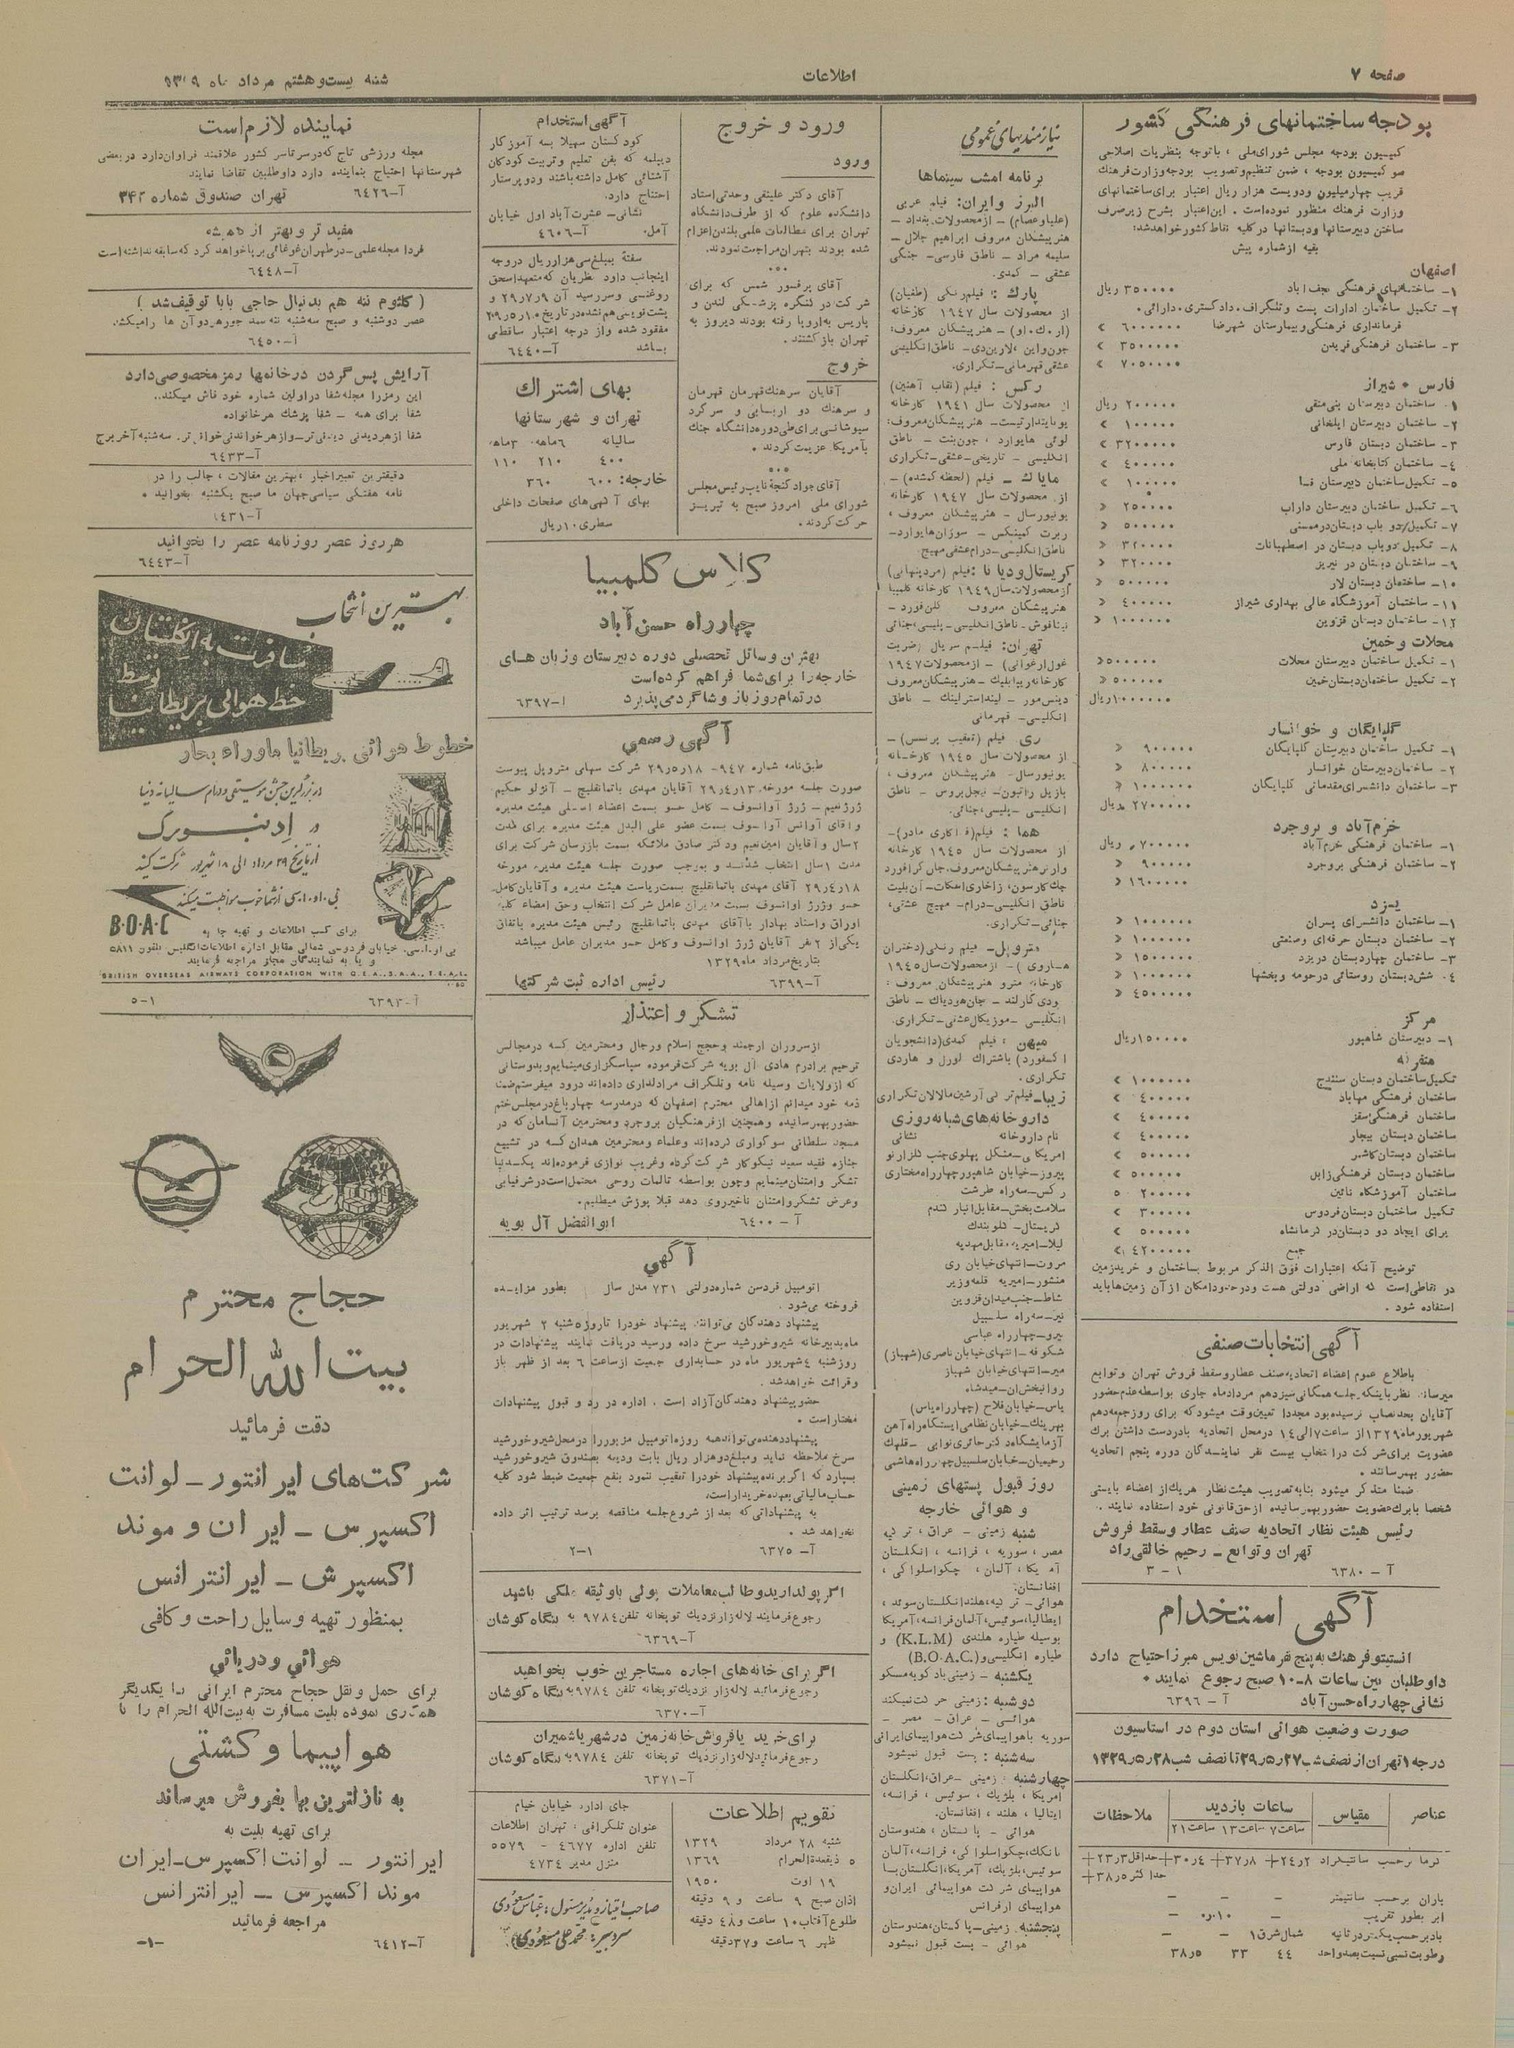 صفحه ۷
اطلاعات
شنبه بیست و هشتم مرداد ماه ۱۳۲۹
بودجه ساختمانهای فرهنگی کشور
کمیسیون بودجه مجلس شورای ملی ، با توجه بنظریات اصلاحی
سو کمیسیون بودجه ، ضمن تنظیم و تصویب بودجه وزارت فرهنگ
قریب چهار میلیون و دویست هزار ریال اعتبار برای ساختمانهای
وزارت فرهنگ منظور نموده است . این اعتبار بشرح زیر صرف
ساختن دبیرستانها و دبستانها در کلیه نقاط کشور خواهد شد:
بقیه از شماره پیش
اصفهان
۱- ساختمانهای فرهنگی نجف آباد ۳۵۰۰۰۰ ریال
۲- تکمیل ساختمان ادارات پست و تلگراف . دادگستری . دارائی .
فرمانداری فرهنگی و بیمارستان شهرضا ۶۰۰۰۰۰ »
۳- ساختمان فرهنگی فریدن ۳۵۰۰۰۰ »
۷۰۵۰۰۰۰ »
فارس * شیراز
۱- ساختمان دبیرستان ۲۰۰۰۰۰ ریال
۲- ساختمان دبیرستان ایلخانی ۱۰۰۰۰۰ »
۳- ساختمان دبستان فارس ۳۲۰۰۰۰۰ »
۴- ساختمان کتابخانه ملی ۴۰۰۰۰۰ »
۵- تکمیل ساختمان دبیرستان فسا ۱۰۰۰۰۰ »
۶- تکمیل ساختمان دبیرستان داراب ۲۵۰۰۰۰ »
۷- تکمیل دو باب دبستان در ممسنی ۵۰۰۰۰۰ »
۸- تکمیل دو باب دبستان در اصطهبانات ۳۲۰۰۰۰ »
۹- ساختمان دبستان در نیریز ۳۲۰۰۰۰ »
۱۰- ساختمان دبستان لار ۵۰۰۰۰۰ »
۱۱- ساختمان آموزشگاه عالی بهداری شیراز ۴۰۰۰۰۰ »
۱۲- ساختمان دبستان قزوین ۱۰۰۰۰۰۰ »
محلات و خمین
۱- تکمیل ساختمان دبیرستان محلات ۵۰۰۰۰۰ »
۲- تکمیل ساختمان دبستان خمین ۵۰۰۰۰۰ »
۱۰۰۰۰۰۰ ریال
گلپایگان و خوانسار
۱- تکمیل ساختمان دبیرستان گلپایگان ۹۰۰۰۰۰ »
۲- ساختمان دبیرستان خوانسار ۸۰۰۰۰۰ »
۳- ساختمان دانشسرای مقدماتی گلپایگان ۱۰۰۰۰۰۰ »
۲۷۰۰۰۰۰ ریال
خرم آباد و بروجرد
۱- ساختمان فرهنگی خرم آباد ۷۰۰۰۰۰ ریال
۲- ساختمان فرهنگی بروجرد ۹۰۰۰۰۰ »
۱۶۰۰۰۰۰ »
یزد
۱- ساختمان دانشسرای پسران ۱۰۰۰۰۰۰ »
۲- ساختمان دبستان حرفه‌ای و صنعتی ۱۰۰۰۰۰۰ »
۳- ساختمان چهار دبستان در یزد ۱۵۰۰۰۰۰ »
۴- شش دبستان روستائی در حومه و بخشها ۱۰۰۰۰۰۰ »
۴۵۰۰۰۰۰ »
مرکز
۱- دبیرستان شاهپور ۱۵۰۰۰۰۰ ریال
متفرقه
تکمیل ساختمان دبستان سنندج ۱۰۰۰۰۰۰ »
ساختمان فرهنگی مهاباد ۴۰۰۰۰۰ »
ساختمان فرهنگی سقز ۴۰۰۰۰۰ »
ساختمان دبستان بیجار ۴۰۰۰۰۰ »
ساختمان دبستان کاشمر ۵۰۰۰۰۰ »
ساختمان دبستان فرهنگی زابل ۵۰۰۰۰۰ »
ساختمان آموزشگاه نائین ۲۰۰۰۰۰ »
تکمیل ساختمان دبستان فردوس ۳۰۰۰۰۰ »
برای ایجاد دو دبستان در کرمانشاه ۵۰۰۰۰۰ »
جمع ۴۲۰۰۰۰۰ »
توضیح آنکه اعتبارات فوق الذکر مربوط بساختمان و خرید زمین
در نقاطی است که اراضی دولتی هست و در حدود امکان از آن زمین ها باید
استفاده شود .
آگهی انتخابات صنفی
باطلاع عموم اعضاء اتحادیه صنف عطار و سقط فروش تهران و توابع
میرساند نظر باینکه جلسه همگانی سیزدهم مرداد ماه جاری بواسطه عدم حضور
آقایان بحد نصاب نرسیده بود مجددا تعیین وقت میشود که برای روز جمعه دهم
شهریور ماه ۱۳۲۹ از ساعت ۷ الی ۱۴ در محل اتحادیه با در دست داشتن برگ
عضویت برای شرکت در انتخاب بیست نفر نمایندگان دوره پنجم اتحادیه
حضور بهمرسانند .
ضمنا متذکر میشود بنا به تصویب هیئت نظار هر یک از اعضاء بایستی
شخصا با برگ عضویت حضور بهمرسانیده از حق قانونی خود استفاده نمایند .
رئیس هیئت نظار اتحادیه صنف عطار و سقط فروش
تهران و توابع - رحیم خالقی راد
آ - ۶۳۸۰ ۱ - ۳
آگهی استخدام
انستیتو فرهنگ به پنج نفر ماشین نویس مبرز احتیاج دارد
داوطلبان بین ساعات ۸-۱۰ صبح رجوع نمایند *
نشانی چهار راه حسن آباد آ - ۶۳۹۶
صورت وضعیت هوائی استان دوم در استاسیون
درجه ۱ تهران از نصف شب ۲۷ر۵ر۲۹ تا نصف شب ۲۸ر۵ر۱۳۲۹
عناصر مقیاس ساعات بازدید ملاحظات
ساعت ۷ ساعت ۱۳ ساعت ۲۱
گرما برحسب سانتیگراد ۲ر۲۴+ ۸ر۳۷+ ۴ر۳۰+ حداقل ۳ر۲۳+
حداکثر ۵ر۳۸+
باران برحسب سانتیمتر - - -
ابر بطور تقریب - ۱۰ر۰ -
باد برحسب یکمتر در ثانیه شمال شرق ۱ - -
رطوبت نسبی نسبت بصد واحد ۴۴ ۳۳ ۵ر۳۸
نیازمندیهای عمومی
برنامه امشب سینماها
البرز و ایران: فیلم عربی
(علیا و عصام) - از محصولات بغداد -
هنرپیشگان معروف ابراهیم جلال -
سلیمه مراد - ناطق فارسی - جنگی
عشقی - کمدی.
پارک : فیلم رنگی (طغیان)
از محصولات سال ۱۹۴۷ کارخانه
(ار . ک . او) - هنرپیشگان معروف:
جون واین ، لارین دی - ناطق انگلیسی
عشقی قهرمانی - تکراری.
رکس : فیلم (نقاب آهنین)
از محصولات سال ۱۹۴۱ کارخانه
یونایتد ارتیست - هنرپیشگان معروف:
لوئی هایوارد ، جون بنت - ناطق
انگلیسی - تاریخی - عشقی - تکراری
مایاک - فیلم (لحظه گمشده) -
از محصولات سال ۱۹۴۷ کارخانه
یونیورسال - هنرپیشگان معروف ،
ربرت کمینگس - سوزان هایوارد -
ناطق انگلیسی - درام عشقی مهیج
کریستال و دیانا : فیلم (مرد پنهانی)
از محصولات سال ۱۹۴۹ کارخانه کلمبیا
هنرپیشگان معروف گلن فورد -
نینا فوش - ناطق انگلیسی - پلیسی ، جنائی
تهران : فیلم سریال (ضربت
غول ارغوانی) - از محصولات ۱۹۴۷
کارخانه ریپابلیک - هنرپیشگان معروف
دینس مور - لیندا سترلینگ - ناطق
انگلیسی - قهرمانی
ری فیلم (تعقیب پرنسس) -
از محصولات سال ۱۹۴۵ کارخانه
یونیورسال - هنرپیشگان معروف ،
بازیل راتبون - نیجل بروس - ناطق
انگلیسی - پلیسی ، جنائی.
هما : فیلم (فداکاری مادر) -
از محصولات سال ۱۹۴۵ کارخانه
وارنر هنرپیشگان معروف . جان کرافورد
جک کارسون ، زاخاری اسکات - آن بلیت
ناطق انگلیسی - درام - مهیج عشقی ،
جنائی - تکراری.
متروپل - فیلم رنگی (دختران
هاروی) - از محصولات سال ۱۹۴۵
کارخانه مترو هنرپیشگان معروف :
جودی گارلند - جان هودیاک - ناطق
انگلیسی - موزیکال عشقی - تکراری.
میهن : فیلم کمدی (دانشجویان
اکسفورد) باشتراک لورل و هاردی
تکراری .
زیبا - فیلم ترکی آرشین مالالان تکراری
داروخانه‌های شبانه روزی
نام داروخانه نشانی
پیروز - خیابان شاهپور چهار راه مختاری
رکس - سه راه طرشت
سلامت بخش - مقابل انبار گندم
کریستال - گلوبندک
لیلا - امیریه مقابل مهدیه
مروت - انتهای خیابان ری
منشور - امیریه قلعه وزیر
نشاط - جنب میدان قزوین
نیر - سه راه سلسبیل
نیرو - چهار راه عباسی
شکوفه - انتهای خیابان ناصری (شهباز)
میر - انتهای خیابان شهباز
روانبخش ان - میدان شاه
یاس - خیابان فلاح (چهار راه یاس)
بهرینک - خیابان نظامی ایستگاه راه آهن
رحیمیان - خیابان سلسبیل چهار راه هاشمی
روز قبول پستهای زمینی
و هوائی خارجه
شنبه زمینی - عراق ، ترکیه
مصر ، سوریه ، فرانسه ، انگلستان
آمریکا ، آلمان ، چکواسلواکی ،
افغانستان.
هوائی - ترکیه ، هلند انگلستان سوئد ،
ایطالیا ، سوئیس ، آلمان فرانسه ، آمریکا
بوسیله طیاره هلندی (K.L.M) و
طیاره انگلیسی و (B.O.A.C)
یکشنبه - زمینی باد کوبه مسکو
دوشنبه : زمینی حرکت نمیکند
هوائی - عراق - مصر -
سوریه با هواپیمای شرکت هواپیمائی ایرانی
سه شنبه : پست قبول نمیشود
چهارشنبه : زمینی - عراق ، انگلستان
امریکا ، بلژیک ، سوئیس ، فرانسه ،
ایتالیا ، هلند ، افغانستان.
هوائی - پاکستان ، هندوستان
بانکک ، چکواسلواکی ، فرانسه ، آلمان
سوئیس ، بلژیک ، آمریکا ، انگلستان با
هواپیمای شرکت هواپیمائی ایران و
هواپیمای ارفرانس
پنجشنبه . زمینی - پاکستان ، هندوستان
هوائی - پست قبول نمیشود
ورود و خروج
ورود
آقای دکتر علینقی وحدتی استاد
دانشکده علوم که از طرف دانشگاه
تهران برای مطالعات علمی بلندن اعزام
شده بودند بتهران مراجعت نمودند.
•••
آقای پرفسور شمس که برای
شرکت در کنگره پزشکی لندن و
پاریس به اروپا رفته بودند دیروز به
تهران بازگشتند.
خروج
آقایان سرهنگ قهرمان قهرمان
و سرهنگ دو اربابی و سرگرد
سیوشانی برای طی دوره دانشگاه جنگ
بآمریکا عزیمت کردند .
•••
آقای جواد گنجه نایب رئیس مجلس
شورای ملی امروز صبح به تبریز
حرکت کردند .
آگهی استخدام
کودکستان سهیلا به آموزگار
دیپلمه که بفن تعلیم و تربیت کودکان
آشنائی کامل داشته باشند و دو پرستار
احتیاج دارد.
نشانی - عشرت آباد اول خیابان
آمل. آ-۴۶۰۶
سفته بمبلغ سی هزار ریال در وجه
اینجانب داود نظریان که متعهد اسحق
روغنی و سررسید آن ۷ر۹ر۲۹ و
پشت نویسی هم نشده در تاریخ ۱۰ر۵ر۲۹
مفقود شده و از درجه اعتبار ساقط می
باشد آ-۶۴۴۰
بهای اشتراک
تهران و شهرستانها
سالیانه ۶ماهه ۳ماهه
۴۰۰ ۲۱۰ ۱۱۰
خارجه : ۶۰۰ ۳۶۰
بهای آگهی های صفحات داخلی
سطری ۱۰ ریال
کلاس کلمبیا
چهار راه حسن آباد
بهترین وسائل تحصیلی دوره دبیرستان و زبان های
خارجه را برای شما فراهم کرده است
در تمام روز باز و شاگرد می پذیرد ا-۶۳۹۷
آگهی رسمی
طبق نامه شماره ۹۴۷- ۱۸ر۵ر۲۹ شرکت سهامی متروپل پیوست
صورت جلسه مورخه ۱۳ر۴ر۲۹ آقایان مهدی باتمانقلیچ - آنژلو حکیم
ژرژ نعیم - ژرژ آوانسوف - کامل حسو بسمت اعضاء اصلی هیئت مدیره
و آقای آوانس آوانسوف بسمت عضو علی البدل هیئت مدیره برای مدت
۲ سال و آقایان امین نعیم و دکتر صادق ملائکه بسمت بازرسان شرکت برای
مدت ۱ سال انتخاب شدند و بموجب صورت جلسه هیئت مدیره مورخه
۱۸ر۴ر۲۹ آقای مهدی باتمانقلیچ بسمت ریاست هیئت مدیره و آقایان کامل
حسو و ژرژ اوانسوف بسمت مدیران عامل شرکت انتخاب و حق امضاء کلیه
اوراق و اسناد بهادار با آقای مهدی باتمانقلیچ رئیس هیئت مدیره باتفاق
یکی از ۲ نفر آقایان ژرژ اوانسوف و کامل حسو مدیران عامل میباشد
بتاریخ مرداد ماه ۱۳۲۹
آ-۶۳۹۹ رئیس اداره ثبت شرکتها
تشکر و اعتذار
از سروران ارجمند و حجج اسلام و رجال و محترمین که در مجالس
ترحیم برادرم هادی آل بویه شرکت فرموده سپاسگزاری مینمایم و بدوستانی
که از ولایات وسیله نامه و تلگراف مرا دلداری داده‌اند درود میفرستم ضمنا
ذمه خود میدانم از اهالی محترم اصفهان که در مدرسه چهار باغ در مجلس ختم
حضور بهمرسانیده و همچنین از فرهنگیان بروجرد و محترمین آنسامان که در
مسجد سلطانی سوگواری کرده‌اند و علماء و محترمین همدان که در تشییع
جنازه فقید سعید نیکوکار شرکت کرده و غریب نوازی فرموده‌اند یک دنیا
تشکر و امتنان مینمایم و چون بواسطه تالمات روحی محتمل است در شرفیابی
و عرض تشکر و امتنان تاخیر روی دهد قبلا پوزش میطلبم.
آ - ۶۴۰۰ ابوالفضل آل بویه
آگهی
اتومبیل فردسن شماره دولتی ۷۳۱ مدل سال بطور مزایده
فروخته می‌شود .
پیشنهاد دهندگان می‌توانند پیشنهاد خود را تا روز ۵شنبه ۲ شهریور
ماه بدبیرخانه شیر و خورشید سرخ داده و رسید دریافت نمایند پیشنهادات در
روز شنبه ۴ شهریور ماه در حسابداری جمعیت از ساعت ۶ بعد از ظهر باز
و قرائت خواهد شد.
حضور پیشنهاد دهندگان آزاد است . اداره در رد و قبول پیشنهادات
مختار است .
پیشنهاد دهنده می‌تواند همه روزه اتومبیل مزبور را در محل شیر و خورشید
سرخ ملاحظه نماید و مبلغ دو هزار ریال بابت ودیعه بصندوق شیر و خورشید
بسپارد که اگر برنده پیشنهاد خود را تعقیب ننمود بنفع جمعیت ضبط شود کلیه
حساب مالیاتی بعهده خریدار است.
به پیشنهاداتی که بعد از شروع جلسه مناقصه برسد ترتیب اثر داده
نخواهد شد .
آ- ۶۳۷۵ ۱-۲
اگر پولدارید و طالب معاملات پولی با وثیقه ملکی باشید
رجوع فرمایند لاله‌زار نزدیک توپخانه تلفن ۹۷۸۴ به بنگاه کوشان
آ-۶۳۶۹
اگر برای خانه‌های اجاره مستاجرین خوب بخواهید
رجوع فرمائید لاله زار نزدیک توپخانه تلفن ۹۷۸۴ به بنگاه کوشان
آ-۶۳۷۰
برای خرید یا فروش خانه زمین در شهر یا شمیران
رجوع فرمائید لاله زار نزدیک توپخانه تلفن ۹۷۸۴ به بنگاه کوشان
آ-۶۳۷۱
تقویم اطلاعات
شنبه ۲۸ مرداد ۱۳۲۹
۵ ذیقعدة الحرام ۱۳۶۹
۱۹ اوت ۱۹۵۰
اذان صبح ۹ ساعت و ۹ دقیقه
طلوع آفتاب ۱۰ ساعت و ۴۸ دقیقه
ظهر ۶ ساعت و ۳۷ دقیقه
جای اداره خیابان خیام
عنوان تلگرافی : تهران اطلاعات
تلفن اداره ۴۶۷۷ - ۵۵۷۹
منزل مدیر ۴۷۳۴
صاحب امتیاز و مدیر مسئول : عباس مسعودی
سردبیر : محمد علی مسعودی
نماینده لازم است
مجله ورزشی تاج که در سرتاسر کشور علاقمند فراوان دارد در بعضی
شهرستانها احتیاج بنماینده دارد داوطلبین تقاضا نمایند
آ-۶۴۲۶ تهران صندوق شماره ۳۴۲
مفید تر و بهتر از همیشه
فردا مجله علمی - در طهران غوغائی بر پا خواهد کرد که سابقه نداشته است
آ-۶۴۴۸
(کلثوم ننه هم بدنبال حاجی بابا توقیف شد )
آ-۶۴۵۰
آرایش پس گردن در خانمها رمز مخصوصی دارد
این رمز را مجله شفا در اولین شماره خود فاش میکند..
شفا برای همه - شفا پزشک هر خانواده
شفا از هر دیدنی دیدنی تر - و از هر خواندنی خواندنی تر. سه شنبه آخر برج
آ-۶۴۳۳
دقیقترین تعبیر اخبار ، بهترین مقالات ، جالب را در
نامه هفتگی سیاسی جهان ما صبح یکشنبه بخوانید *
آ-۶۴۳۱
هر روز عصر روزنامه عصر را بخوانید
آ-۶۴۴۳
بهترین انتخاب
مسافرت به انگلستان
توسط
خط هوائی بریطانیا
خطوط هوائی بریطانیا ماوراء بحار
در بزرگترین جشن موسیقی و درام سالیانه دنیا
در ادینبورگ
از تاریخ ۲۹ مرداد الی ۱۸ شهریور شرکت کنید
بی . او . ا . سی از شما خوب مواظبت میکند
B.O.A.C
برای کسب اطلاعات و تهیه جا به
بی . او . ا . سی . خیابان فردوسی شمالی مقابل اداره اطلاعات انگلیس تلفون ۵۸۱۱
و یا به نمایندگان مجاز مراجعه فرمایند
BRITISH OVERSEAS AIRWAYS CORPORATION WITH Q.E.A., S.A.A., T.E.A.L.
آ-۶۳۹۳ ۱-۵
حجاج محترم
بیت الله الحرام
دقت فرمائید
شرکت‌های ایرانتور - لوانت
اکسپرس - ایران و موند
اکسپرس - ایرانترانس
بمنظور تهیه وسایل راحت و کافی
هوائی و دریائی
برای حمل و نقل حجاج محترم ایرانی با یکدیگر
همکاری نموده بلیت مسافرت به بیت الله الحرام را با
هواپیما و کشتی
به نازلترین بها بفروش میرساند
برای تهیه بلیت به
ایرانتور - لوانت اکسپرس - ایران
موند اکسپرس - ایرانترانس
مراجعه فرمائید
آ-۶۴۱۲ -۱-